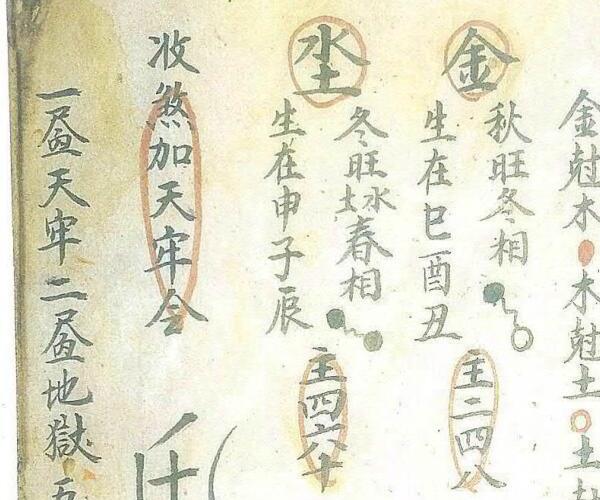 金尅木木尅土土
金
秋旺冬相
生在巳酉丑
主二四八
水土
冬旺水土春相
生在申子辰
主四六十
收煞加天牢令
一
天牢二
地獄五